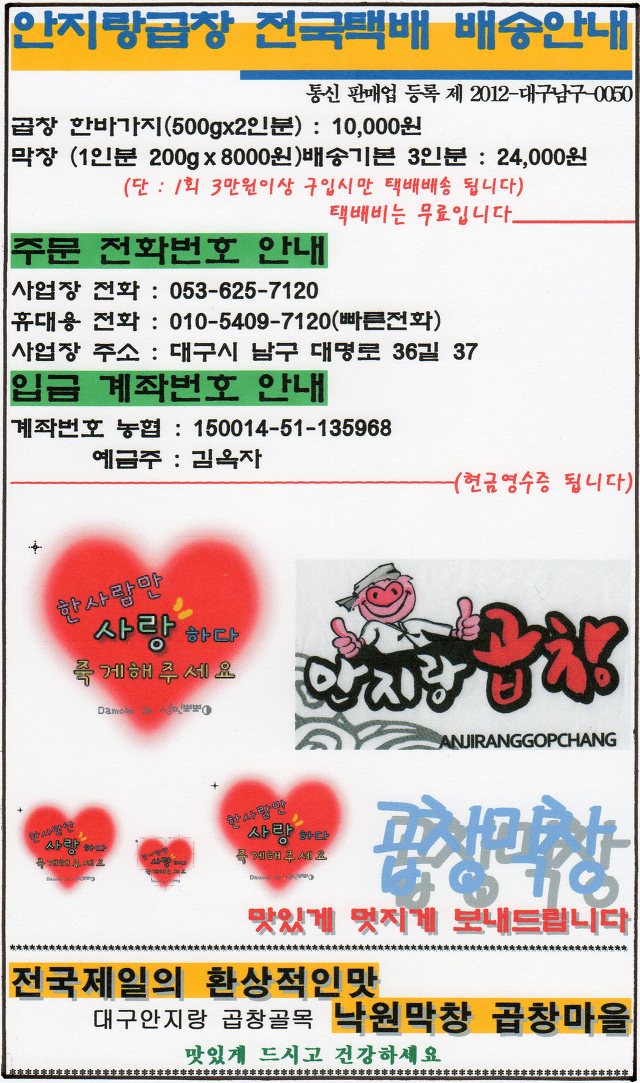 안지랑곱창 전국택배 배송안내
통신 판매업 등록 제 2012-대구남구-0050
곱창 한바가지(500gx2인분) : 10,000원
막창 (1인분 200gx8000원)배송기본 3인분 : 24,000원
(단 : 1회 3만원이상 구입시만 택배배송 됩니다)
택배비는 무료입니다
주문 전화번호 안내
사업장 전화 : 053-625-7120
휴대용 전화 : 010-5409-7120(빠른전화)
사업장 주소 : 대구시 남구 대명로 36길 37
입금 계좌번호 안내
계좌번호 농협 : 150014-51-135968
예금주 : 김옥자
(현금영수증 됩니다)
한사람만
사랑하다
죽게해주세요
안지랑 곱창
ANJIRANGGOPCHANG
한사람만
사랑하다
죽게해주세요
한사람만
사랑하다
죽게해주세요
한사람만
사랑하다
죽게해주세요
곱창막창
맛있게 멋지게 보내드립니다
전국제일의 환상적인맛
대구안지랑 곱창골목 낙원막창 곱창마을
맛있게 드시고 건강하세요